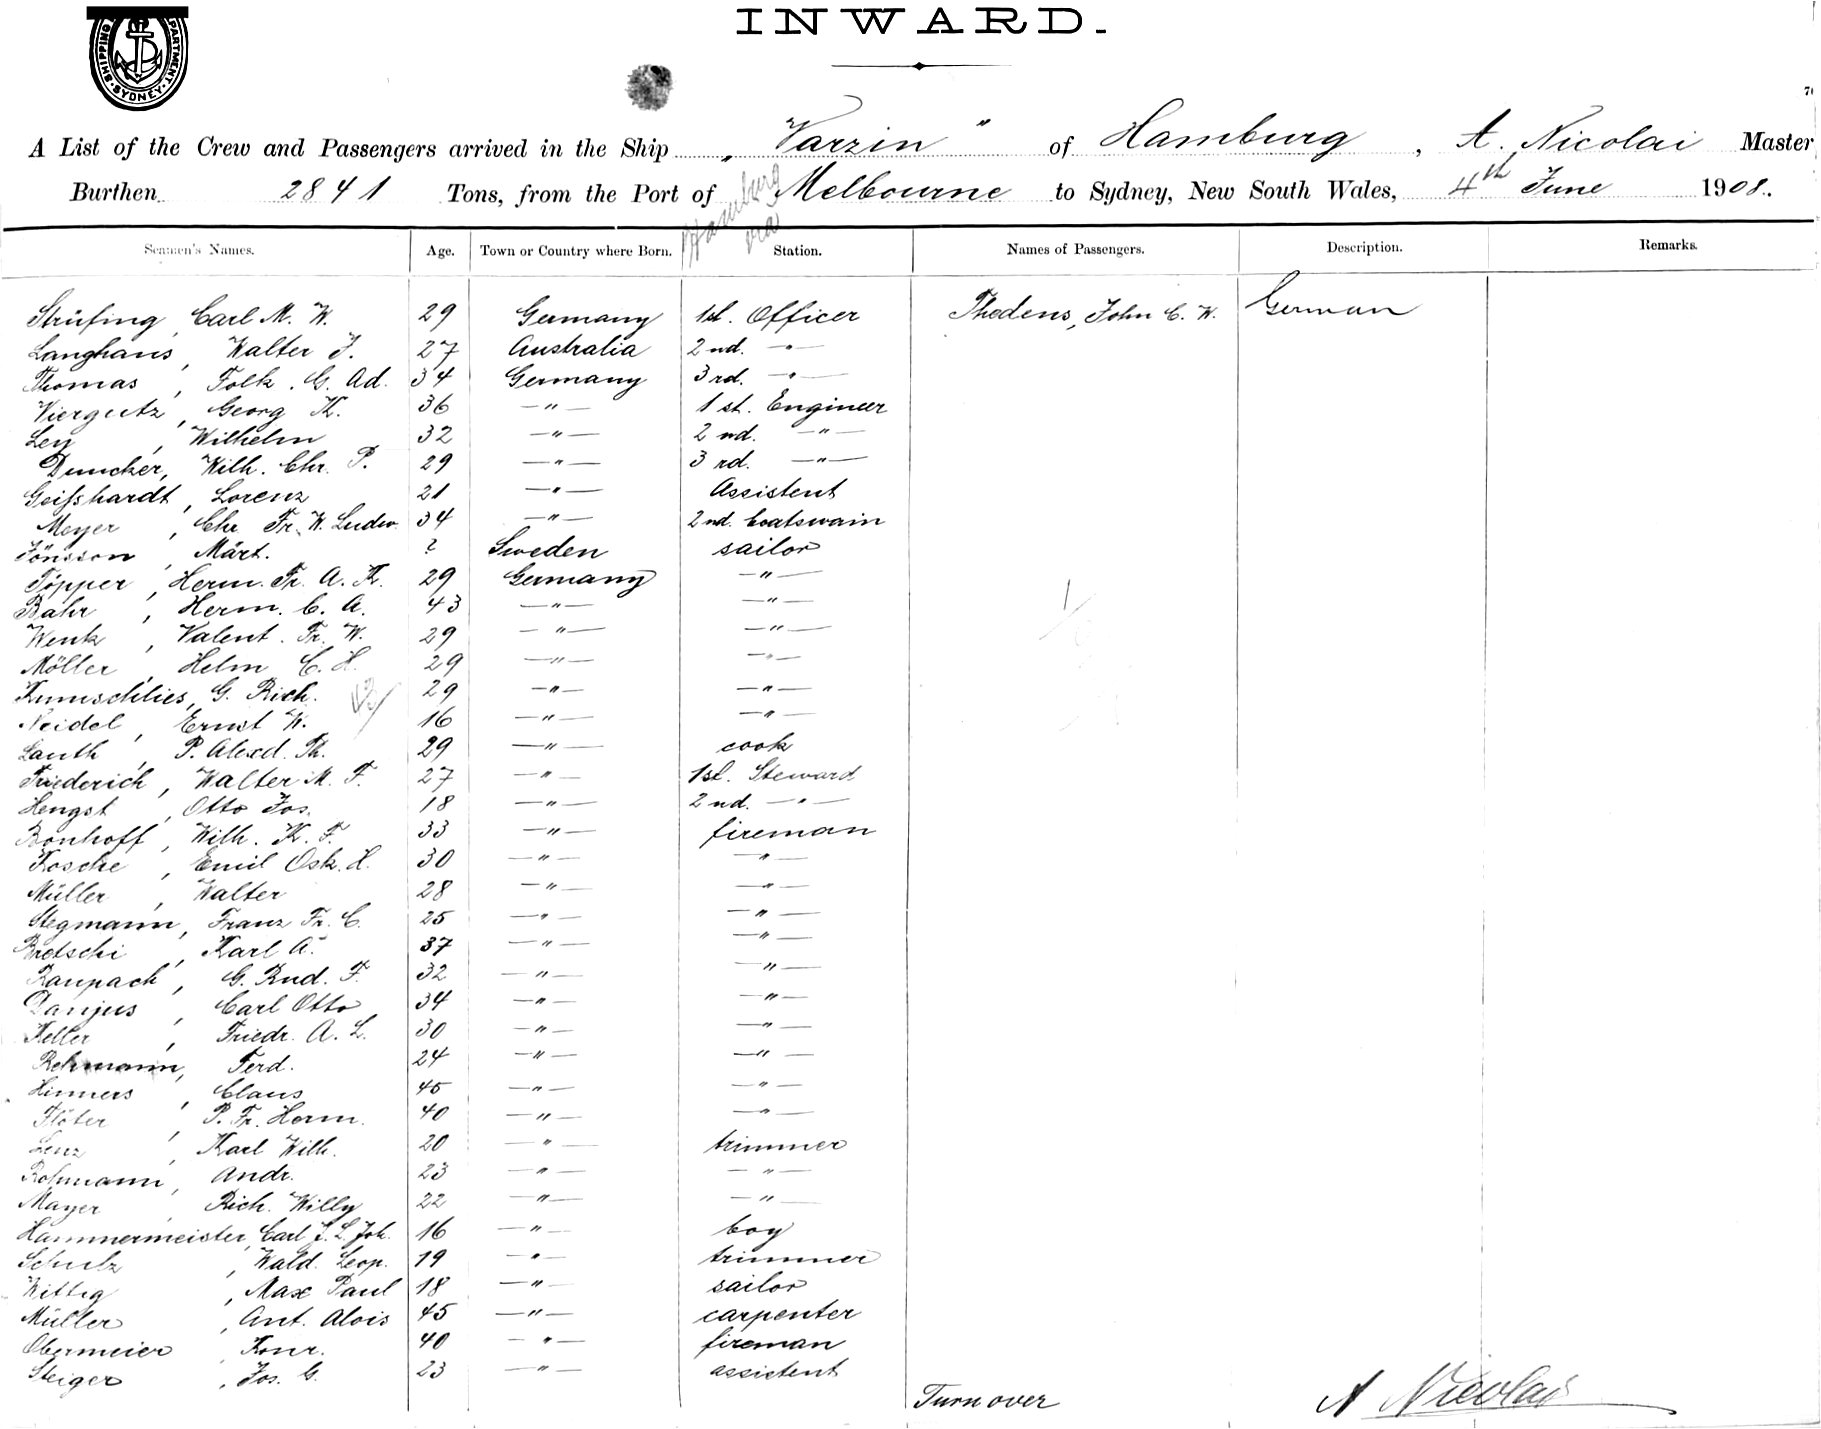 INWARD.
SHIPPING DEPARTMENT SYDNEY
A List of the Crew and Passengers arrived in the Ship „Varzin“ of Hamburg, A. Nicolai Master
Burthen 2841 Tons, from the Port of Hamburg via Melbourne to Sydney, New South Wales, 4th June 1908.
Seamen's Names. Age. Town or Country where Born. Station. Names of Passengers. Description. Remarks.
Strüfing, Carl M. W. 29 Germany 1st. Officer Thedens, John C. W. German
Langhans, Walter J. 27 Australia 2nd. -"-
Thomas, Folk. G. Ad. 34 Germany 3rd. -"-
Viergutz, Georg K. 36 -"- 1st. Engineer
Ley, Wilhelm 32 -"- 2nd. -"-
Duncker, Wilh. Chr. P. 29 -"- 3rd. -"-
Geifshardt, Lorenz 21 -"- Assistent
Meyer, Chr. Fr. W. Ludw. 34 -"- 2nd. boatswain
Jönsson, Märt. ? Sweden sailor
Töpper, Herm. Fr. A. K. 29 Germany -"-
Bahr, Herm. C. A. 43 -"- -"-
Wenk, Valent. Fr. W. 29 -"- -"-
Möller, Helm C. H. 29 -"- -"-
Kumschlies, G. Rich. 29 -"- -"-
Neidel, Ernst W. 16 -"- -"-
Lauth, P. Alexd. Th. 29 -"- cook
Friederich, Walter M. F. 27 -"- 1st. Steward
Hengst, Otto Jos. 18 -"- 2nd. -"-
Bonhoff, Wilh. K. F. 33 -"- fireman
Kosche, Emil Osk. H. 30 -"- -"-
Müller, Walter 28 -"- -"-
Stegmann, Franz Fr. C. 25 -"- -"-
Bretschi, Karl A. 37 -"- -"-
Raupach, G. Rud. F. 32 -"- -"-
Panjus, Carl Otto 34 -"- -"-
Keller, Friedr. A. L. 30 -"- -"-
Rehmann, Ferd. 24 -"- -"-
Hinners, Claus 45 -"- -"-
Flöter, P. Fr. Herm. 40 -"- -"-
Lenz, Karl Wilh. 20 -"- trimmer
Rohmann, Andr. 23 -"- -"-
Mayer, Rich. Willy 22 -"- -"-
Hammermeister, Carl J. L. Joh. 16 -"- boy
Schulz, Wald. Leop. 19 -"- trimmer
Wittig, Max Paul 18 -"- sailor
Müller, Ant. Alois 45 -"- carpenter
Obermeier, Konr. 40 -"- fireman
Steiger, Jos. G. 23 -"- assistent
Turn over A Nicolai